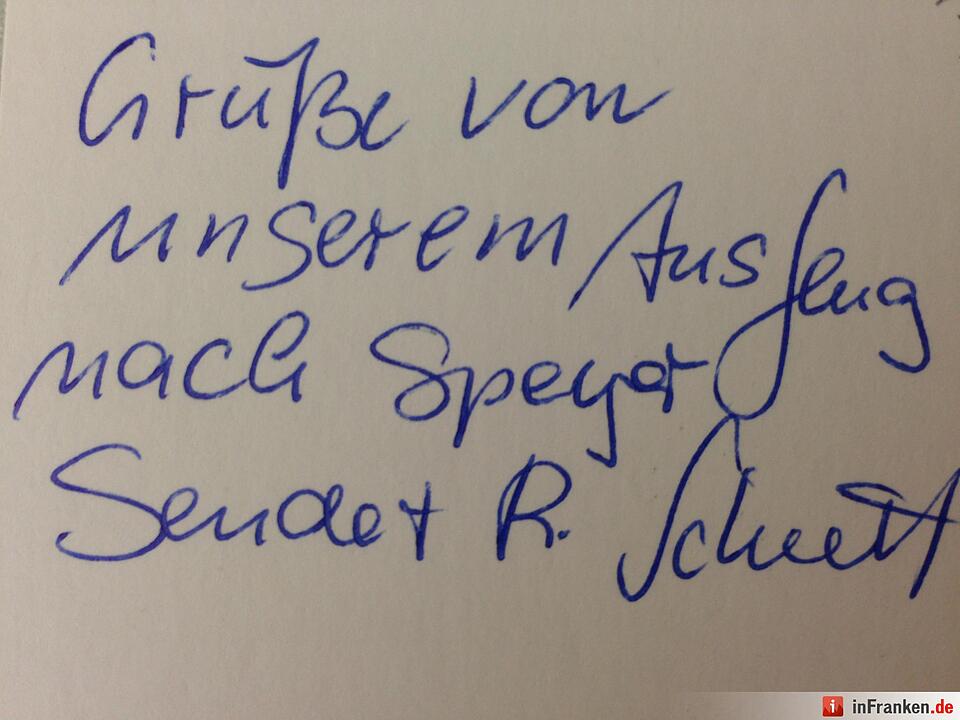 Grüße von
unserem Ausflug
nach Speyer
Sendet R.
inFranken.de